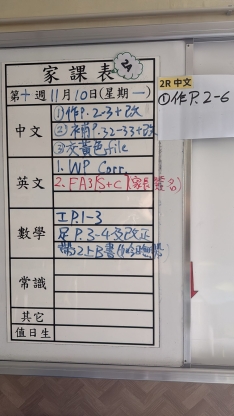 家課表
第十週11月10日(星期一)
2R中文
①作P.2-6
中文
①作P.2-3+改
②補P.32-33+改
③交黃色file
英文
1. NP Corr.
2. FA3(S+C)(家長簽名)
數學
工P.1-3
足P.3-4及改正
帶2上B書
常識
其它
值日生